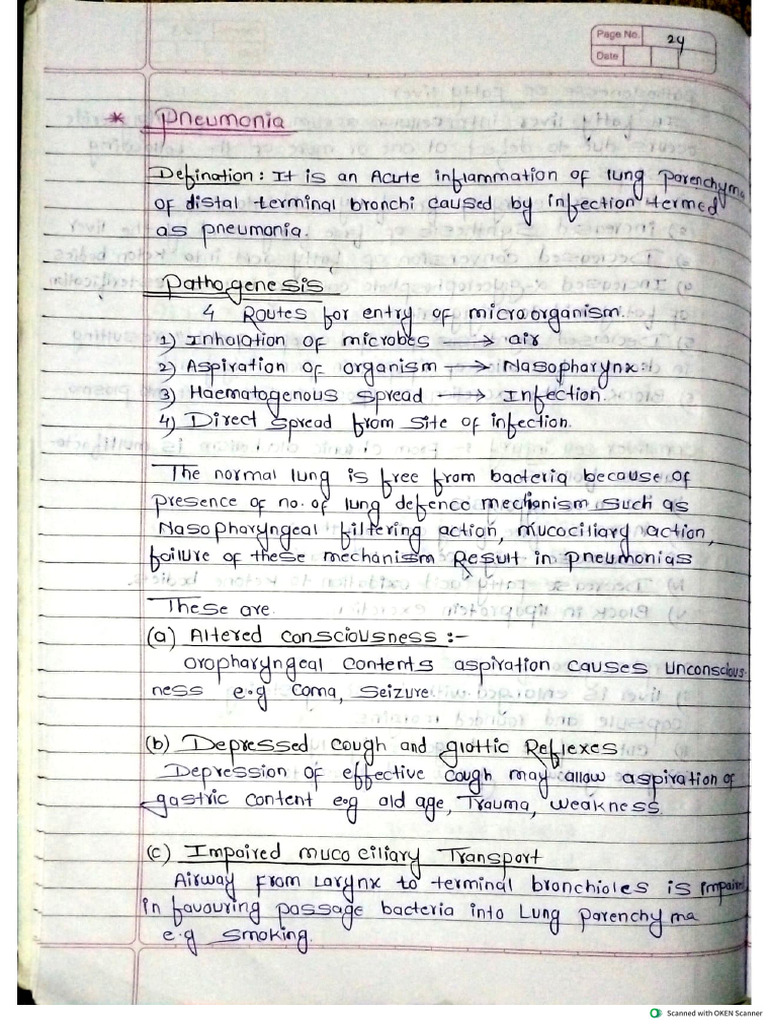 Page No. 24
Date
* Pneumonia
Defination: It is an Acute inflammation of lung parenchyma
of distal terminal bronchi caused by infection termed
as pneumonia.
Pathogenesis
4 Routes for entry of microorganism.
1) Inhalation of microbes → air
2) Aspiration of organism → Nasopharynx.
3) Haematogenous spread → Infection.
4) Direct spread from site of infection.
The normal lung is free from bacteria because of
presence of no. of lung defence mechanism such as
Nasopharyngeal filtering action, mucociliary action,
failure of these mechanism Result in pneumonias
These are.
(a) Altered consciousness :-
oropharyngeal contents aspiration causes unconscious-
ness e.g coma, seizure.
(b) Depressed cough and glottic Reflexes
Depression of effective cough may allow aspiration of
gastric content e.g old age, Trauma, weakness.
(c) Impaired muco ciliary Transport
Airway from Larynx to terminal bronchioles is impaired
in favouring passage bacteria into Lung parenchyma
e.g smoking.
Scanned with OKEN Scanner